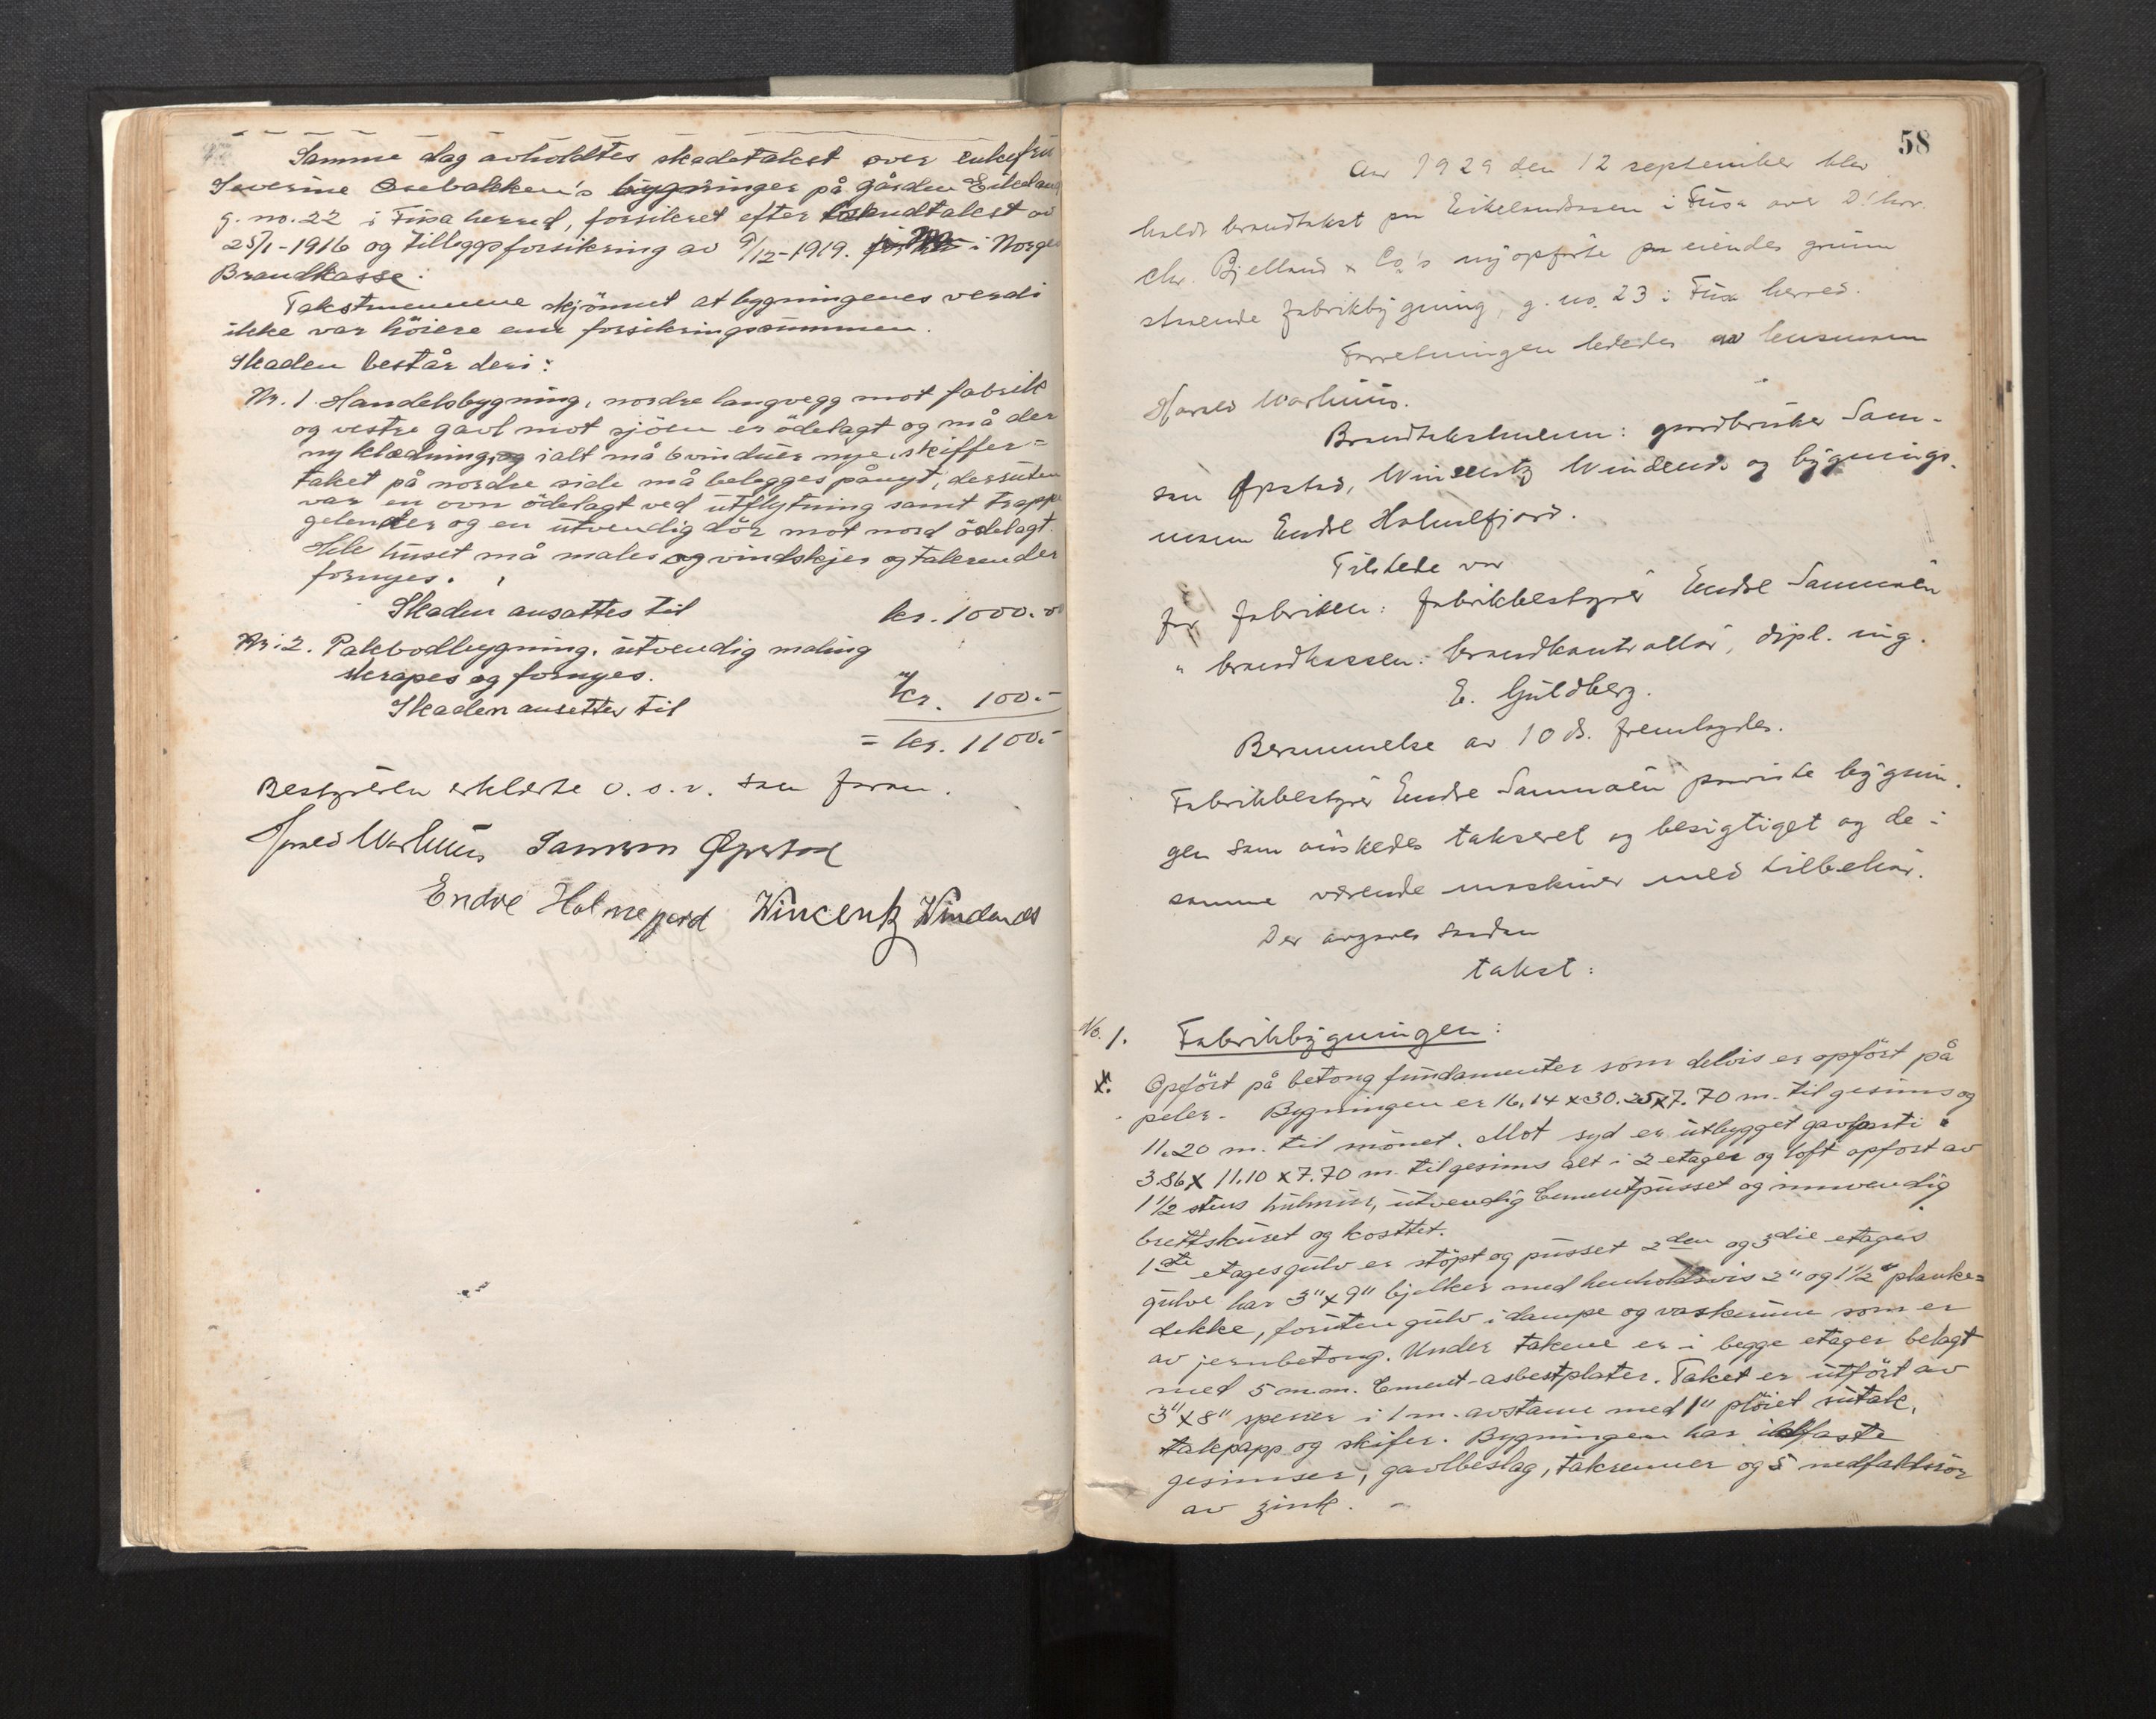 Samme dag avholdtes skadetakst over enkefru
Severine Osebakken's bygninger på gården Eikeland
g. no. 22 i Fusa herred, forsikret efter branntakst av
25/1-1916 og tilleggsforsikring av 9/12-1919. i Norges
Brandkasse:
Takstmennene skjönnet at bygningenes verdi
ikke var höiere enn forsikringssummen.
Skaden består deri:
Nr. 1 Handelsbygning, nordre langvegg mot fabrik
og vestre gavl mot sjöen er ödelagt og må der
ny klædning, og ialt må 6 vinduer nye, skiffer=
taket på nordre side må belegges pånyt, dersuten
var en ovn ödelagt ved utflytning samt trappe
gelender og en utvendig dör mot nord ödelagt.
Hele huset må males og vindskjer og takrender
fornyes.
Skaden ansattes til kr. 1000.00
Nr. 2. Pakbodbygning, utvendig maling
skrapes og fornyes.
Skaden ansettes til kr. 100.-
= kr. 1100.-
Bestyreren erklærte o. s. v. som foran.
Harald Warhuus Samson Øpstad
Endre Holmefjord Wincentz Windenes
58
Aar 1929 den 12 september blev
holdt brandtakst paa Eikelandsosen i Fusa over D'hrr.
Chr. Bjelland & Co's nyopførte paa eiendes grunn
staaende fabrikbygning, g. no. 23 i Fusa herred.
Forretningen lededes av lensmann
Harald Warhuus.
Brandtakstmenn: gardbruker Sam-
son Øpstad, Winsentz Windenes og bygnings-
mann Endre Holmefjord.
Tilstede var
for fabriken: fabrikbestyrer Endre Samnøen
" brandkassen: brandkontrollør, dipl. ing.
E. Guldberg.
Berammelse av 10 ds. fremlagdes.
Fabrikbestyrer Endre Samnøen paaviste bygnin-
gen som ønskedes taksert og besigtiget og de i
samme værende maskiner med tilbehør.
Der avgaves saadan
takst:
No. 1. Fabrikbygningen:
Opfört på betong fundamenter som delvis er opfört på
peler. Bygningen er 16,14 x 30.25 x 7.70 m. til gesims og
11.20 m. til mönet. Mot syd er utbygget gavlparti
3.86 x 11.10 x 7.70 m. til gesims alt i 2 etager og loft opfört av
1 1/2 stens hulmur, utvendig Cementpusset og innvendig
brettskuret og kosttet.
1ste etages gulv er stöpt og pusset 2den og 3die etages
gulve har 3" x 9" bjelker med henholdsvis 2" og 1 1/2" planke=
dekke, foruten gulv i dampe og vaskerum som er
av jernbetong. Under takene er i begge etager belagt
med 5 m.m. Cement-asbestplater. Taket er utfört av
3" x 8" sperrer i 1 m. avstann med 1" plöiet sutak,
takpapp og skifer. Bygningen har ildfaste
gesimser, gavlbeslag, takrenner og 5 nedfaldsrör
av zink. -